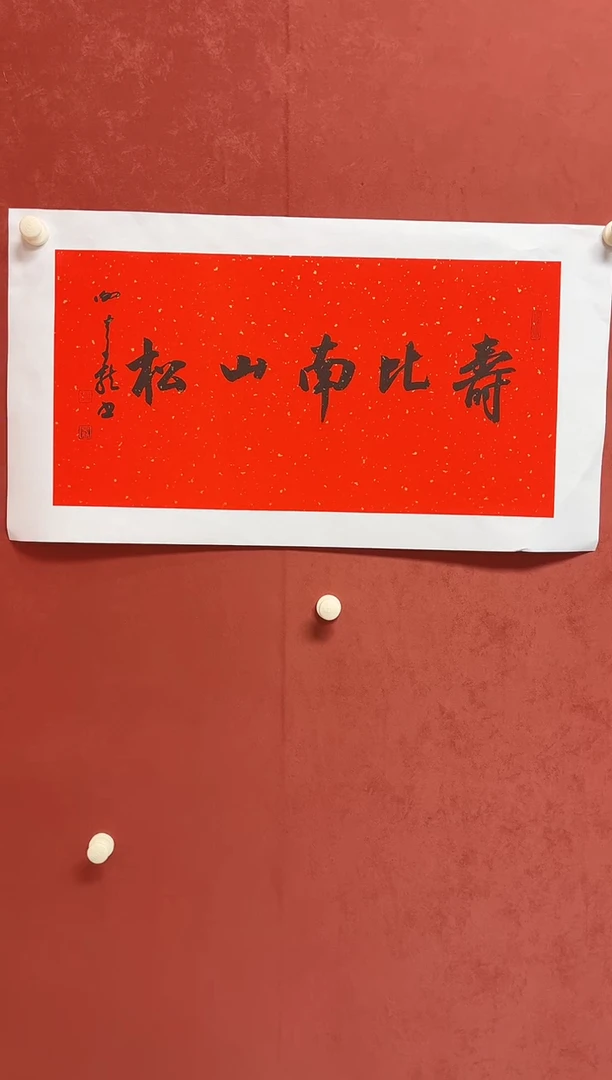 壽比南山松